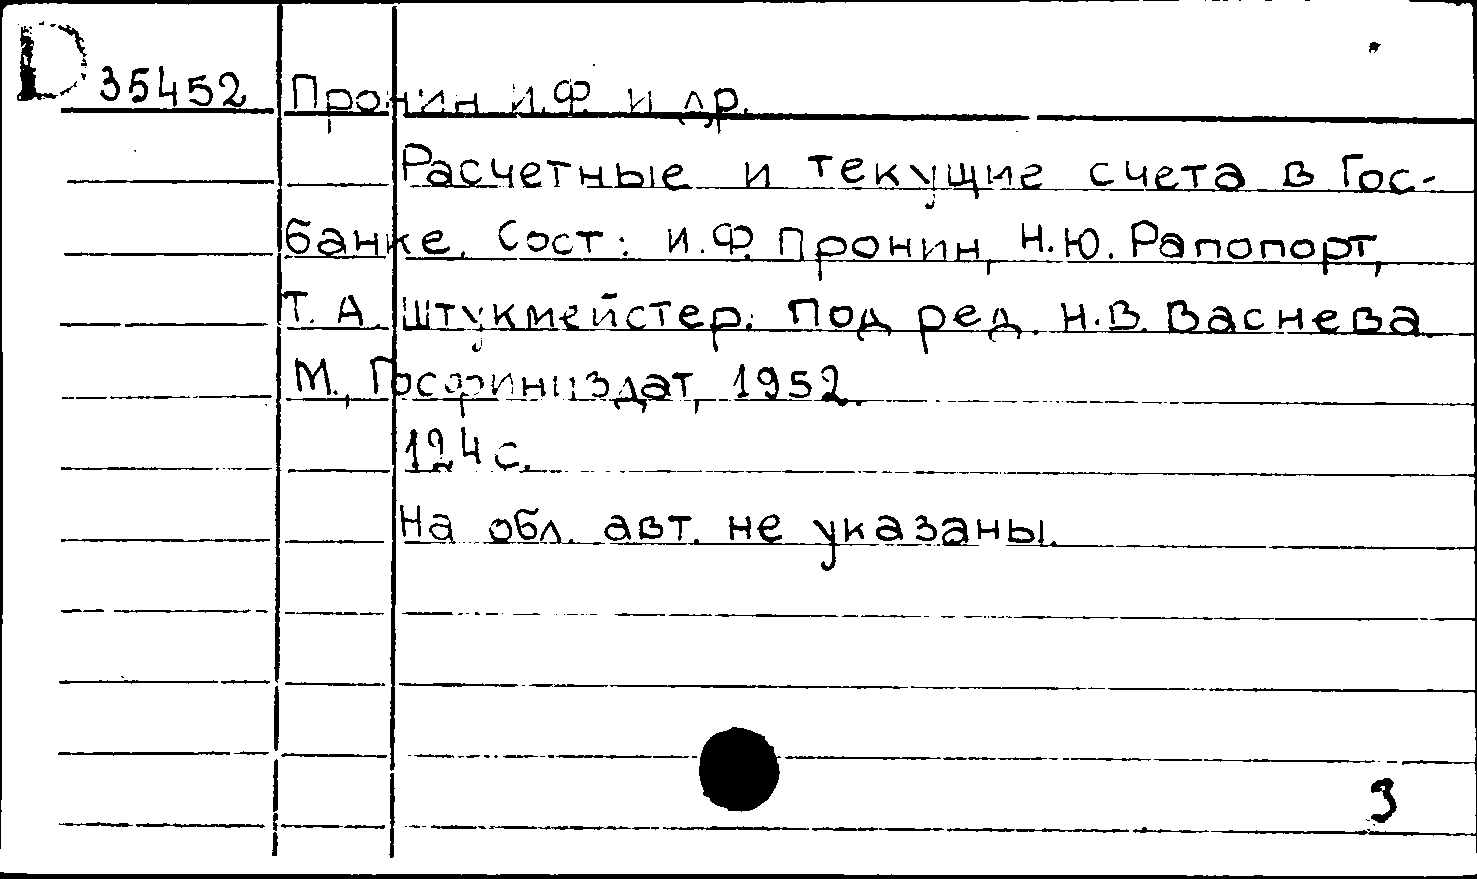 D 35452 Пронин И.Ф. и др.
Расчетные и текущие счета в Гос-
банке. Сост.: И.Ф. Пронин, Н.Ю. Рапопорт,
Т. А. Штукмейстер. Под ред. Н.В. Васнева
М., Госфиниздат, 1952.
124 с.
На обл. авт. не указаны.
3